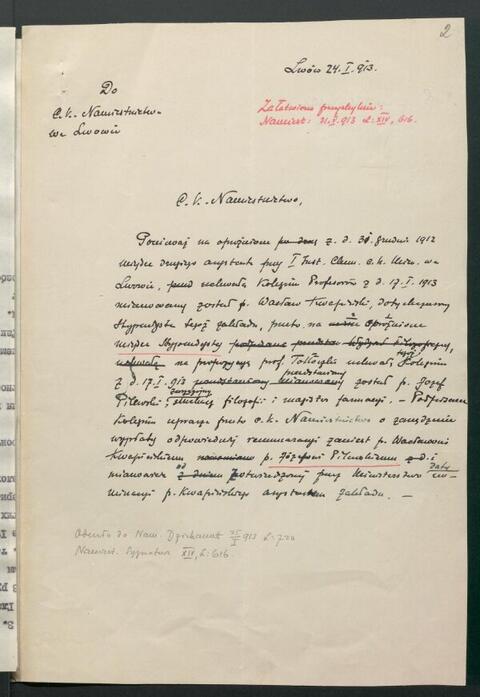 2
Lwów 24. I. 913.
Do
C. k. Namiestnictwa
we Lwowie
Załatwiono przychylnie:
Namiest: 21. I. 913 L: XIV, 616.
C. k. Namiestnictwo,
Ponieważ na opróżnione z. d. 31. grudnia 1912
miejsce drugiego asystenta przy I Inst. Chem. c. k. Uniw. we
Lwowie, uchwałą Kolegium Profesorów z d. 17. I 1913
mianowany został p. Wacław Kwapiński, dotychczasowy
Stypendysta tegoż zakładu, przeto na opróżnione
miejsce Stypendysty
na propozycję prof. Tołłoczki uchwałą tegoż Kolegium
z d. 17. I. 913 przedstawiony został p. Józef
Pilewski, zwyczajny słuchacz filozofii i magister farmacji. – Podpisane
Kolegium uprasza przeto c. k. Namiestnictwo o zarządzenie
wypłaty odpowiedniej remuneracji zamiast p. Wacławowi
Kwapińskiemu p. Józefowi Pilewskiemu
mianowicie od potwierdzonej przez Ministerstwo daty no-
minacji p. Kwapińskiego asystentem zakładu. –
Odeszło do Nam. Dziekanat 913 L:
Namiest. Sygnatura XIV, L: 616.